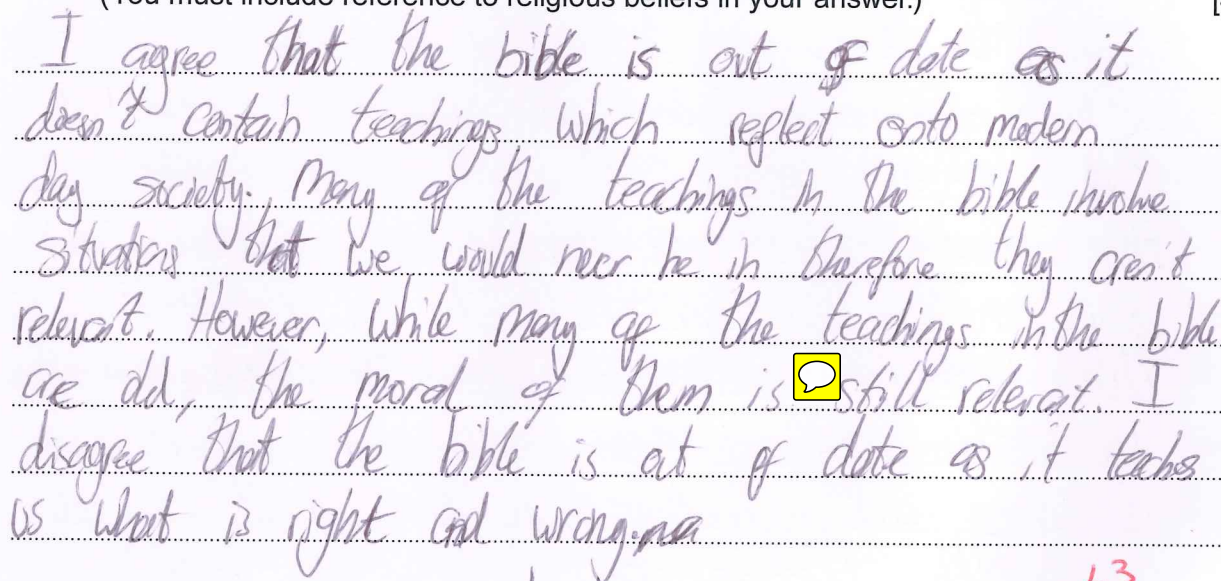 (You must include reference to religious beliefs in your answer.) [
I agree that the bible is out of date as it
doesn't contain teachings which reflect onto modern
day society. Many of the teachings in the bible involve
situations that we would never be in therefore they aren't
relevant. However, while many of the teachings in the bible
are old, the moral of them is still relevant. I
disagree that the bible is out of date as it teaches
us what is right and wrong.
13